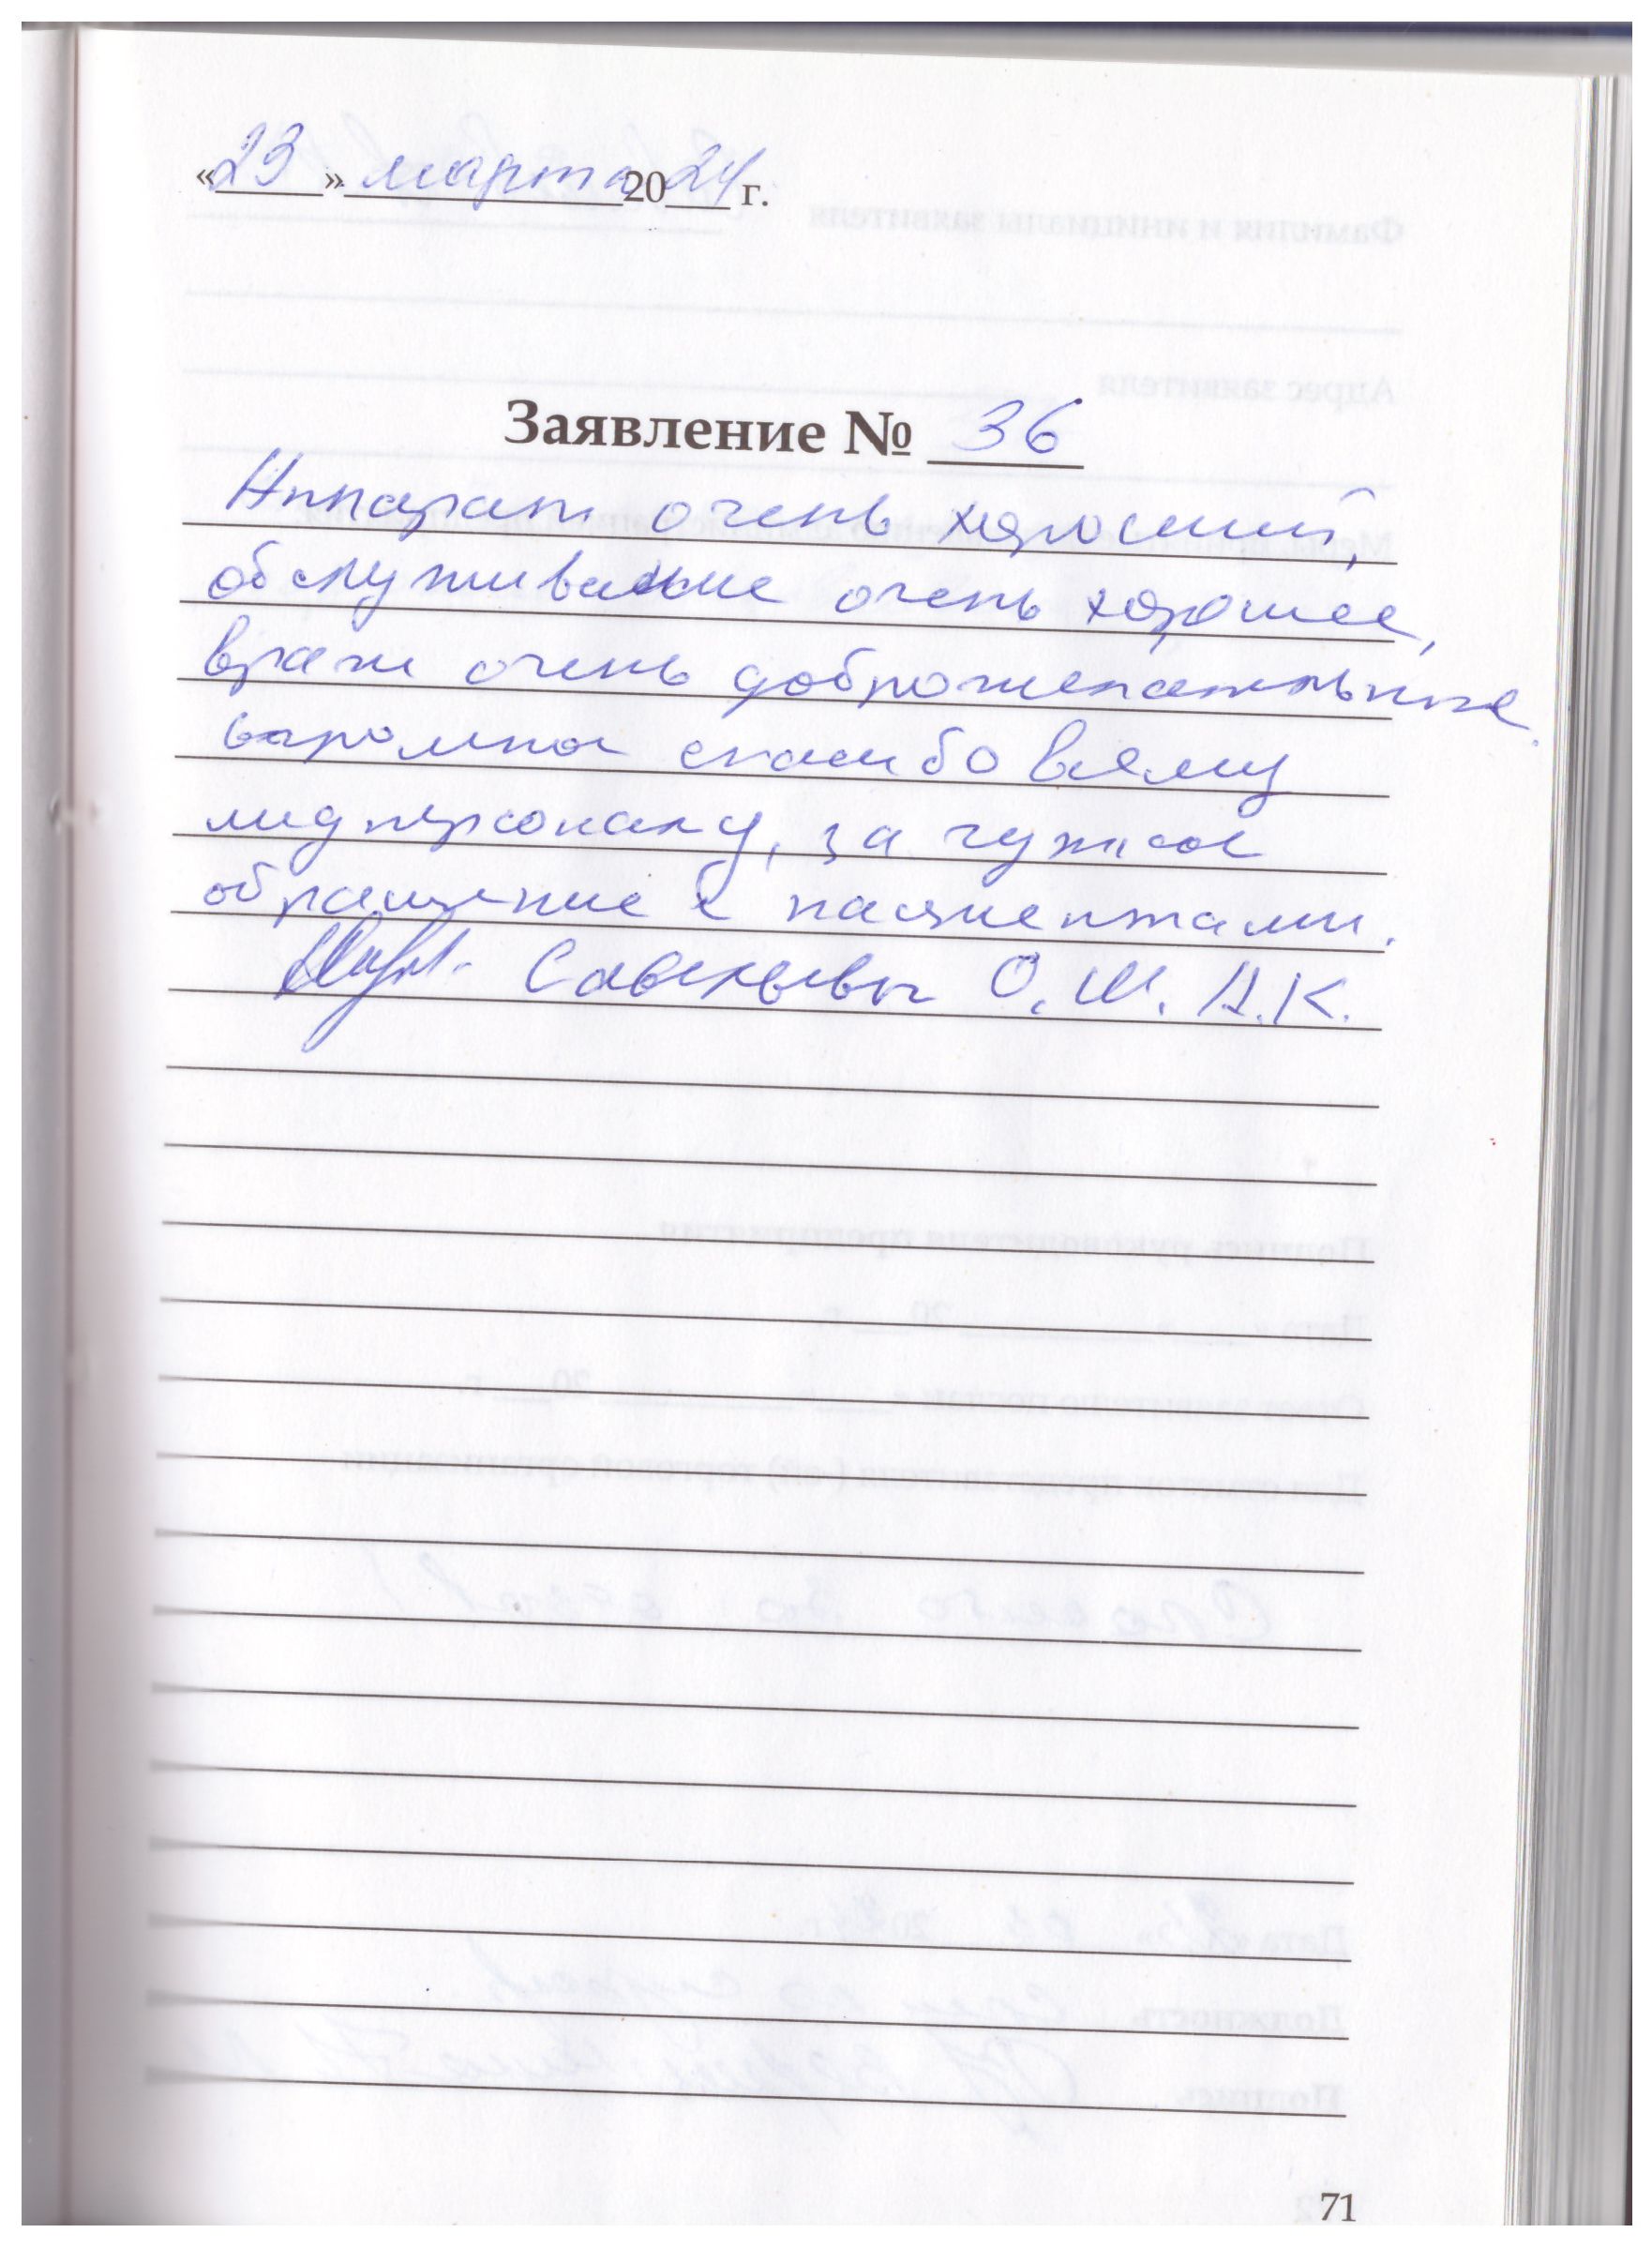 «23» марта 2024 г.
Заявление № 36
Аппарат очень хороший,
обслуживание очень хорошее,
врачи очень доброжелательные.
огромное спасибо всему
медперсоналу, за чуткое
обращение с пациентами.
Савельевы О.Ш. А.К.
71